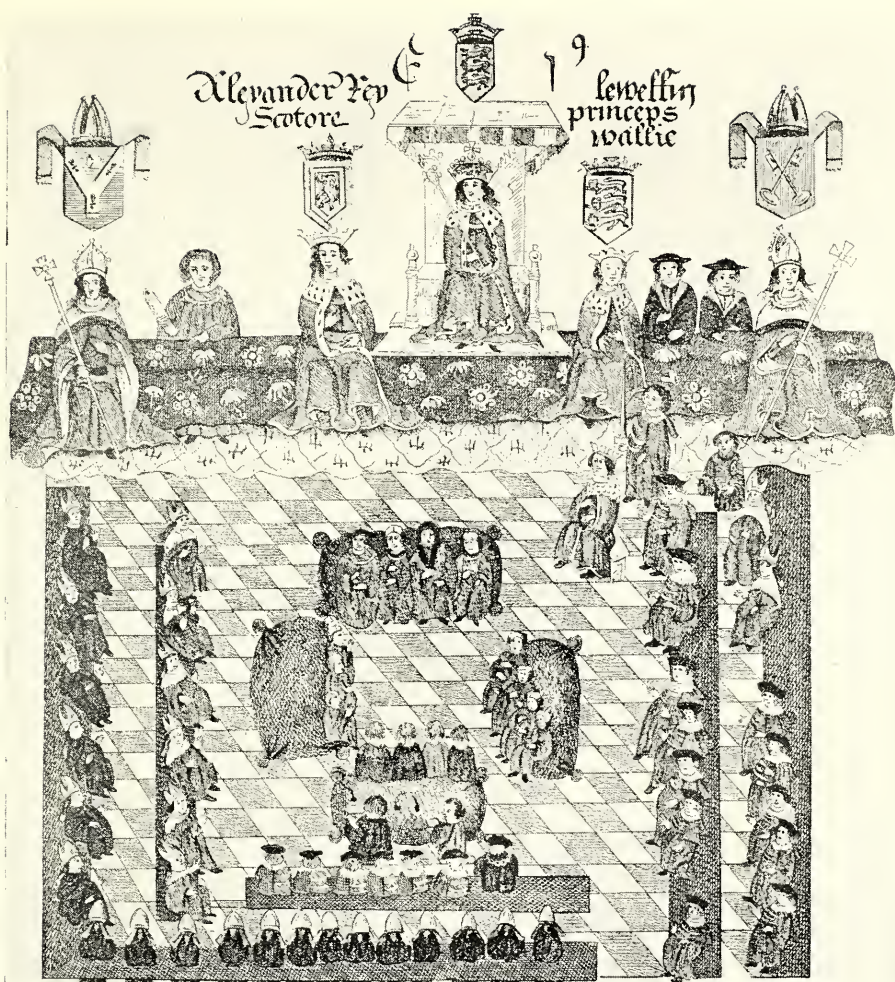 E 1 9
Alexander Rex
Scotore
lewellin
princeps
wallie